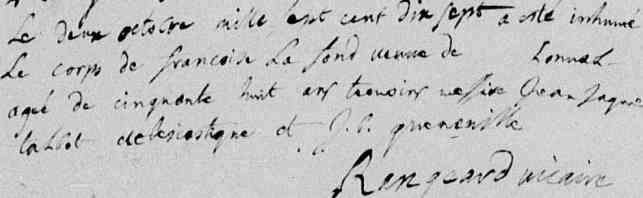 Le deux octobre mille sept cent dix sept a esté inhumé
Le corps de francoise La fond veuve de Lonval
agée de cinquante huit ans temoins messire Jean Jaques
talbot eclesiastique et J. B. queneville
Rangeard vicaire